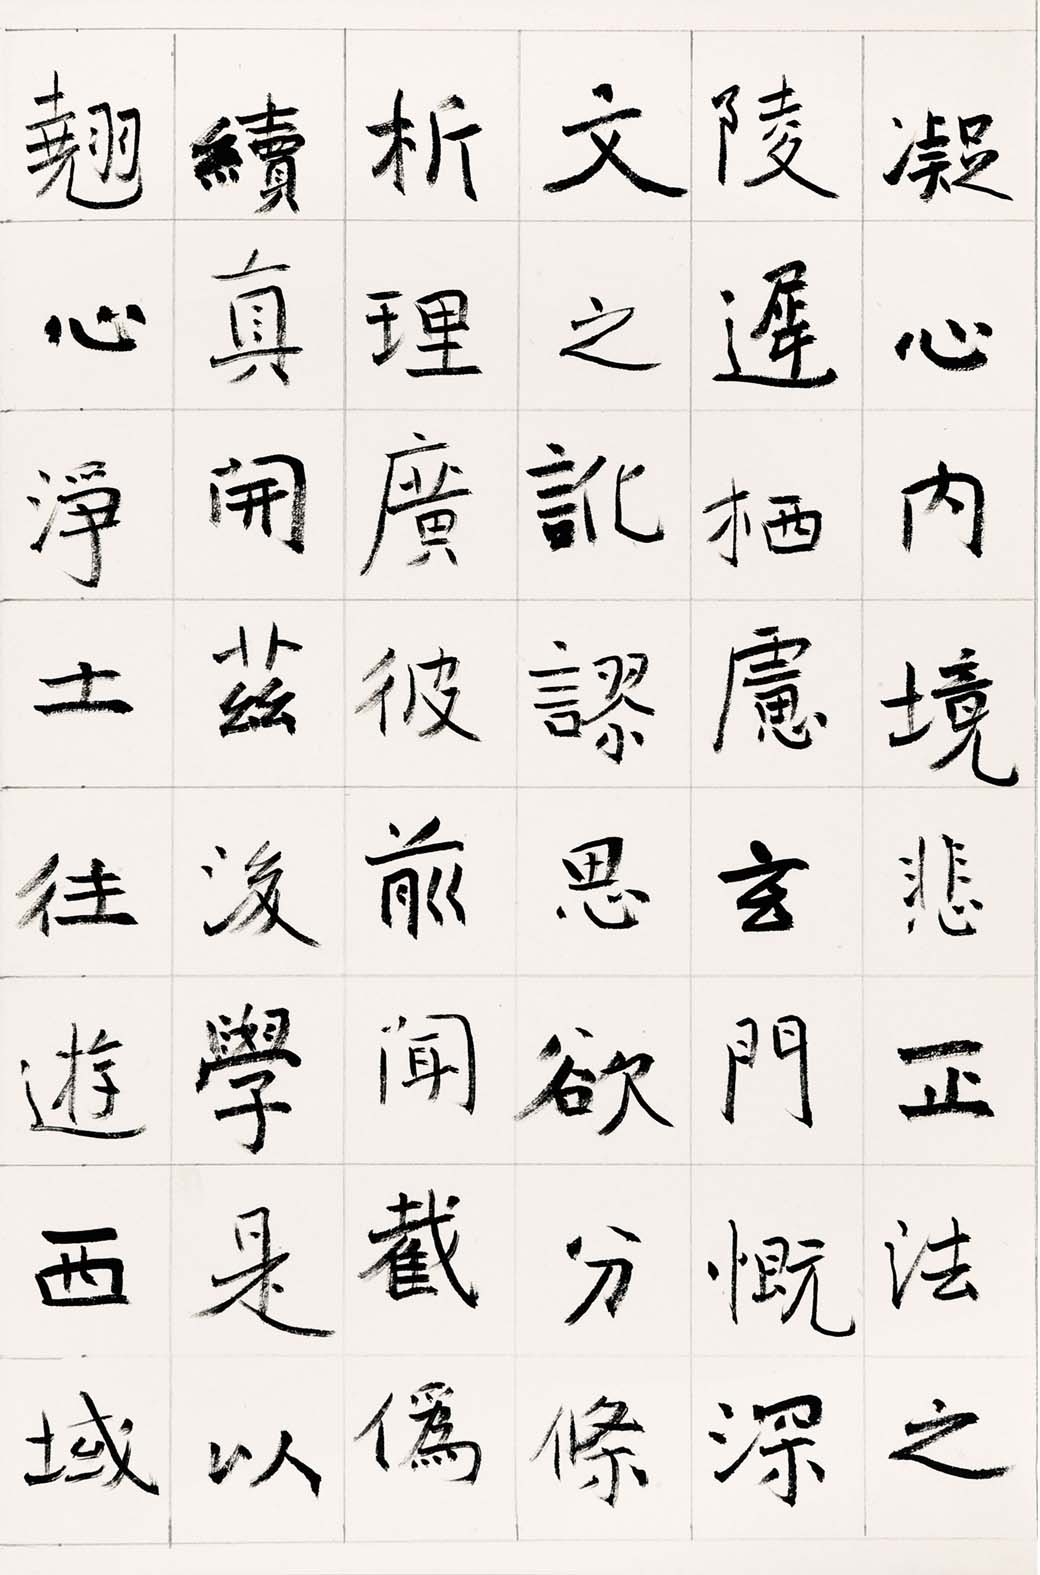 凝心內境悲正法之
陵遲栖慮玄門慨深
文之訛謬思欲分條
析理廣彼前聞截偽
續真開茲後學是以
翹心淨土往遊西域